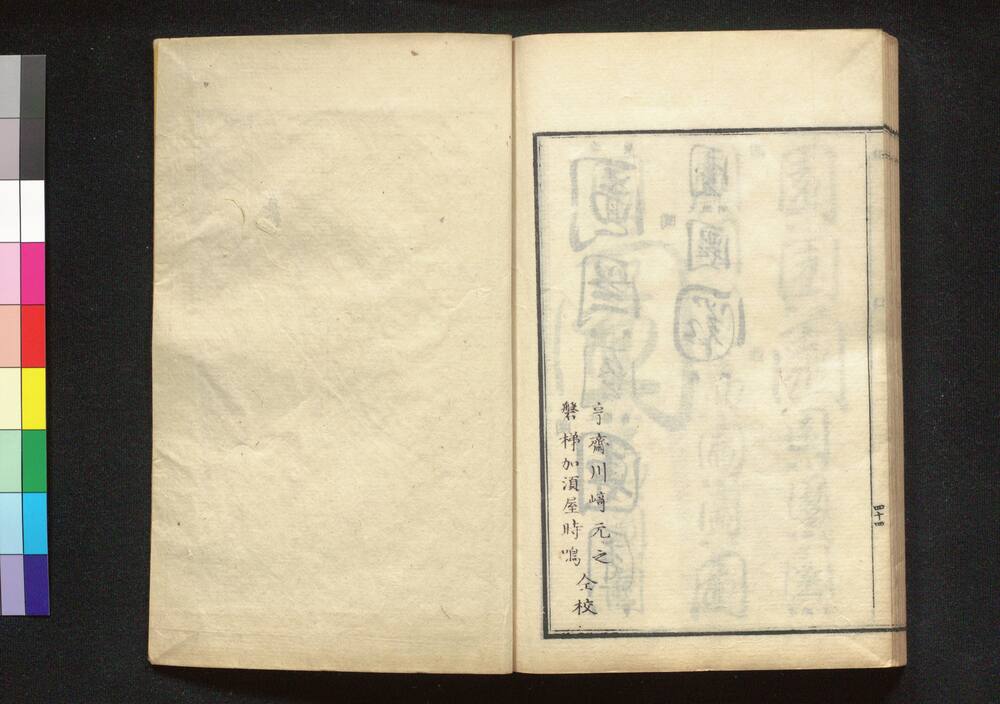 亨齋川﨑元之
磐梯加須屋時鳴
仝校
四十四